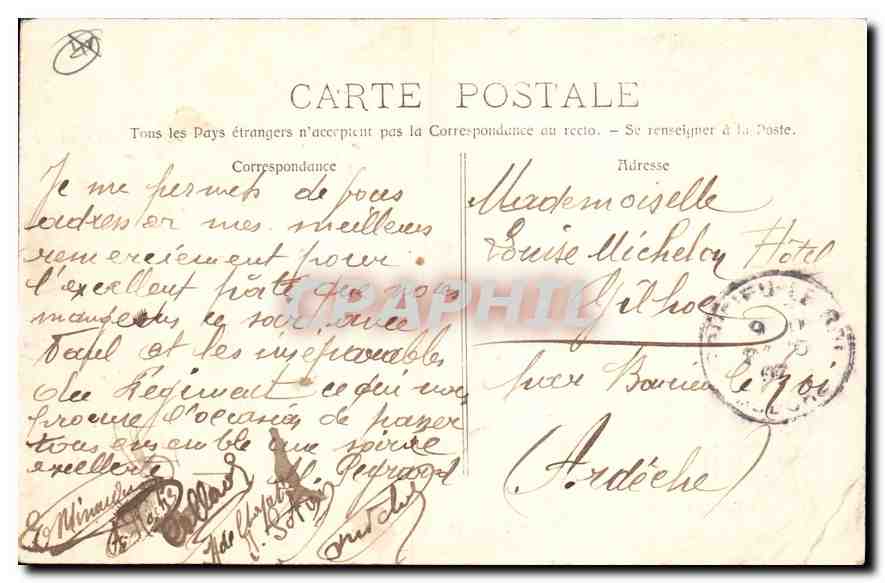 CARTE POSTALE
Tous les Pays étrangers n'acceptent pas la Correspondance au recto. - Se renseigner à la Poste.
Correspondance
Je me permets de vous
adresser mes meilleurs
remerciement pour
l'excellent pâté que nous
mangeons ce soir avec
Paul et les inséparables
du Régiment ce qui nous
procure l'occasion de passer
tous ensemble une soirée
excellente
Adresse
Mademoiselle
Louise Michelon Hôtel
Gilhoc
par le roi
(Ardèche)
CPAPHIL